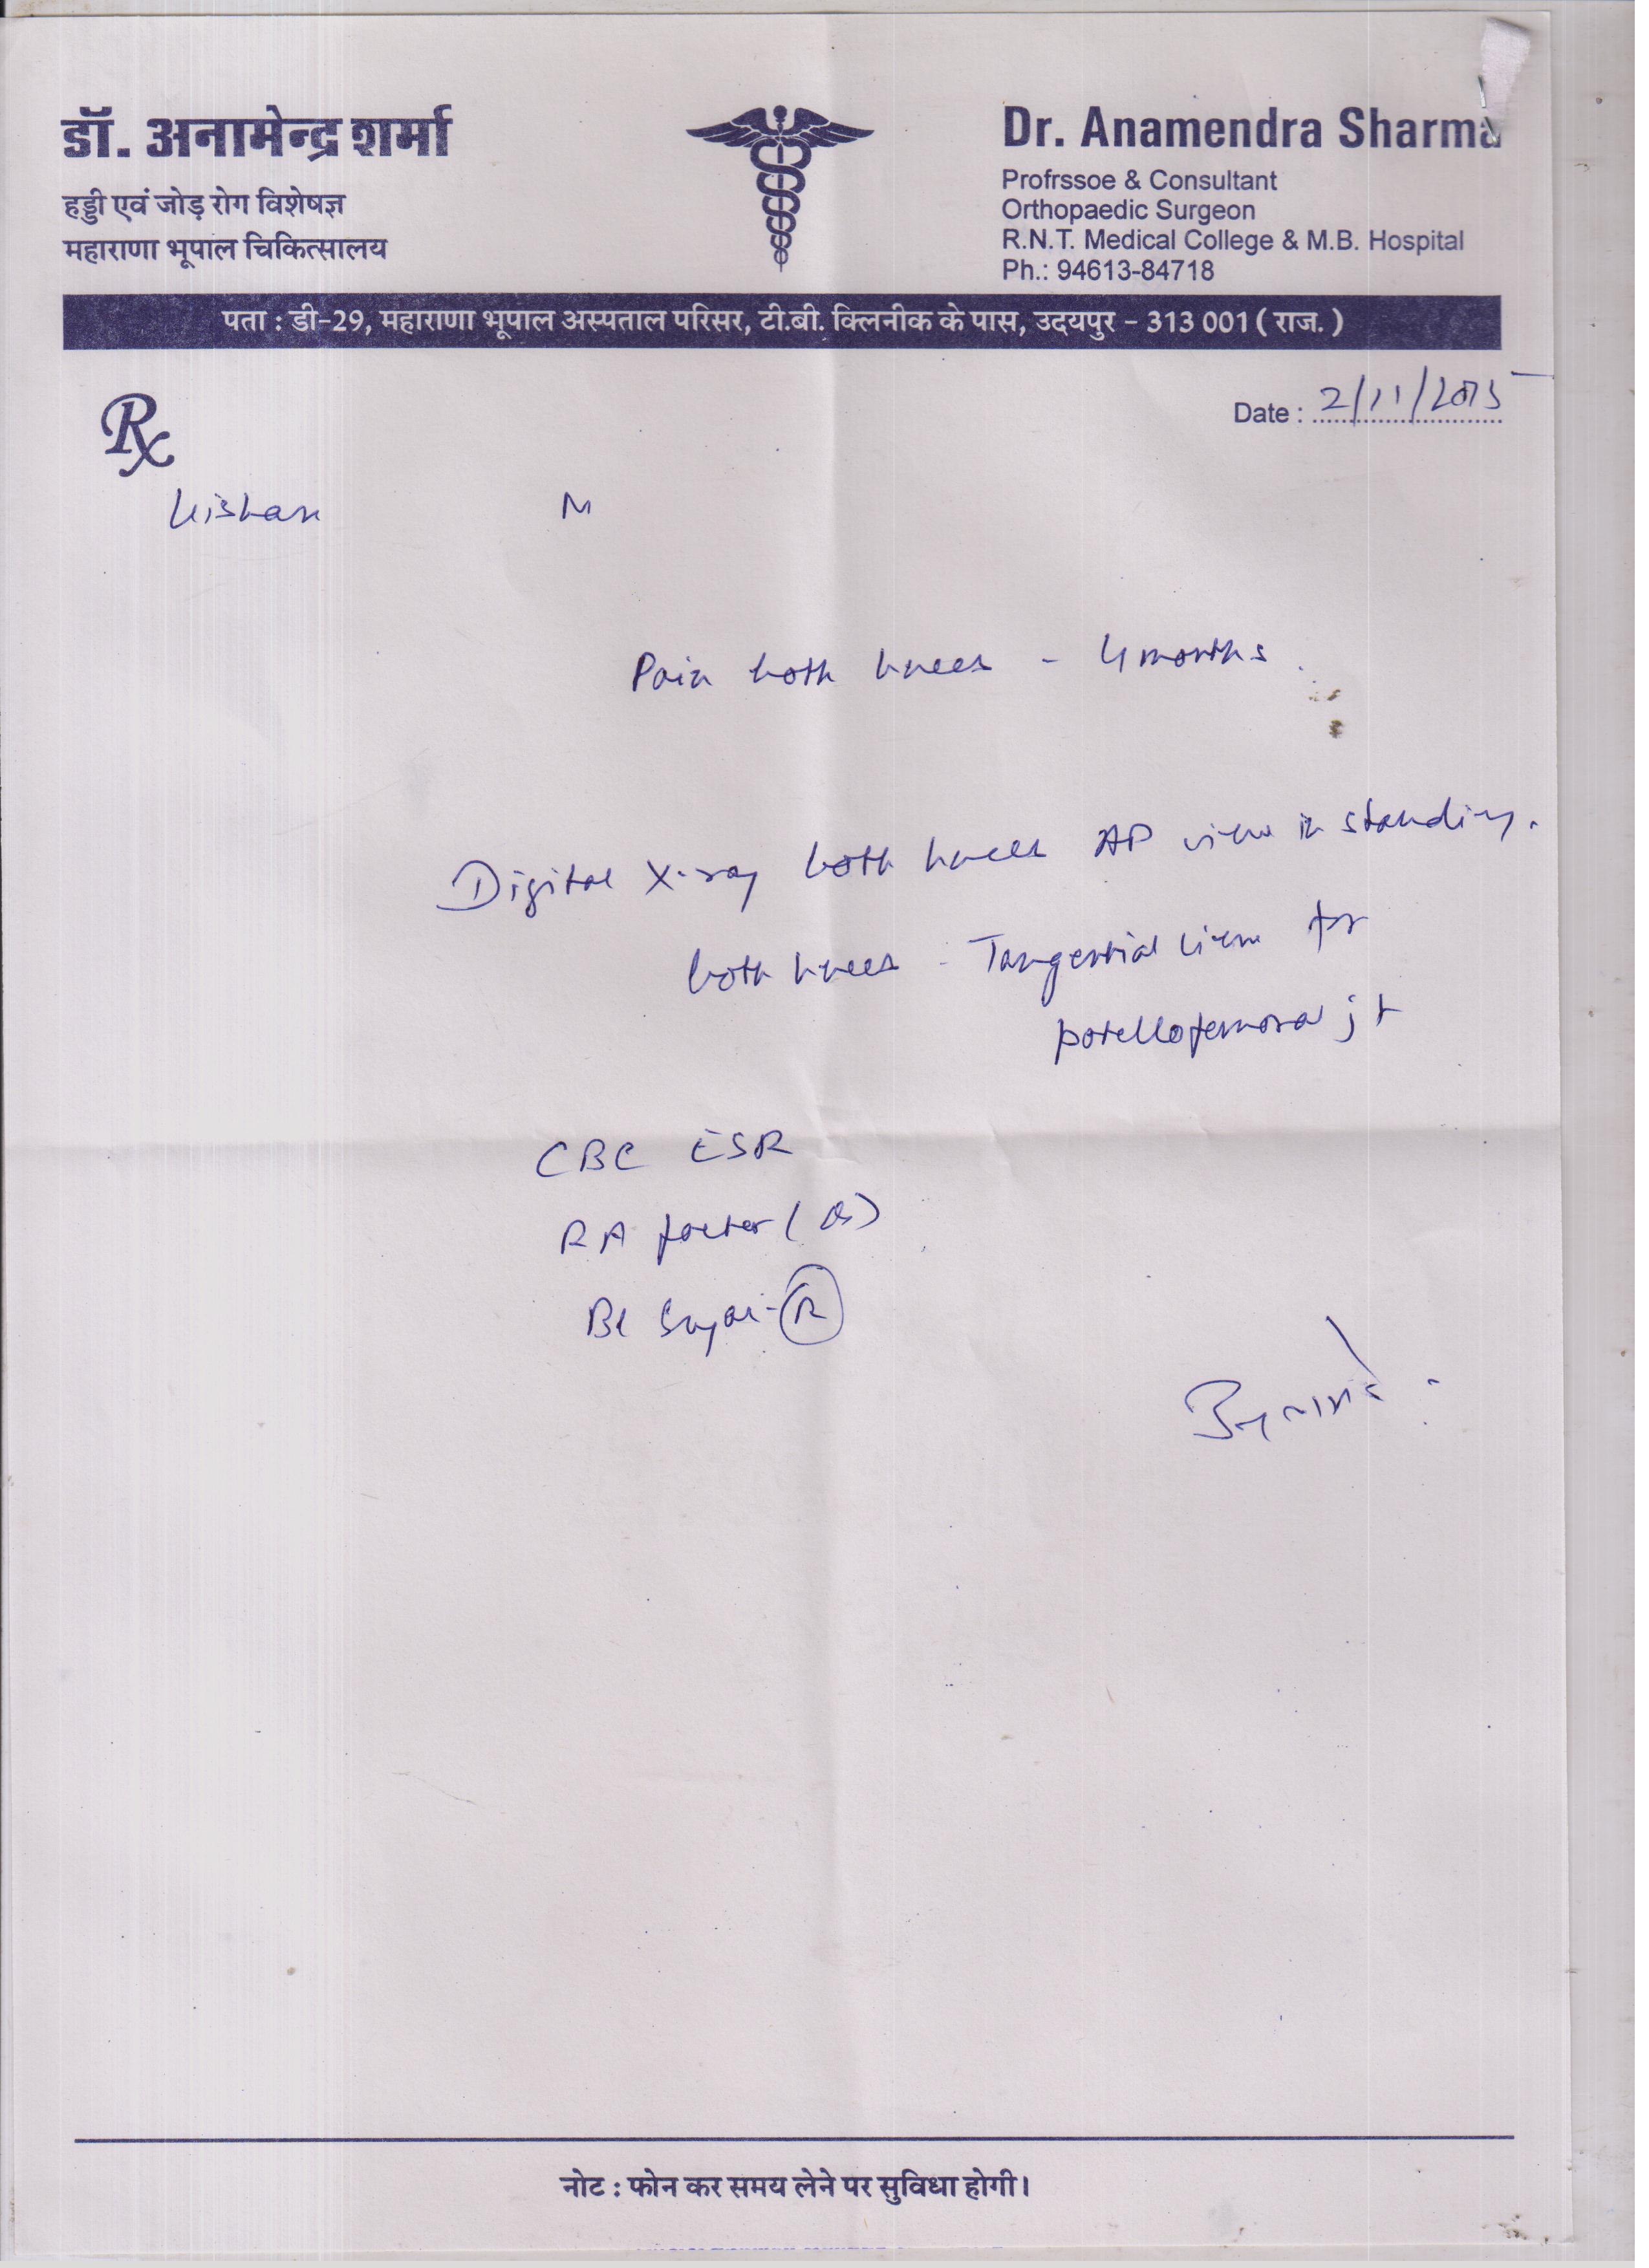 डॉ. अनामेन्द्र शर्मा
हड्डी एवं जोड़ रोग विशेषज्ञ
महाराणा भूपाल चिकित्सालय
Dr. Anamendra Sharma
Profrssoe & Consultant
Orthopaedic Surgeon
R.N.T. Medical College & M.B. Hospital
Ph.: 94613-84718
पता : डी-29, महाराणा भूपाल अस्पताल परिसर, टी.बी. क्लिनीक के पास, उदयपुर - 313 001 ( राज. )
Rx
Date : 2/11/2015
Kishan M
Pain both knees - 4 months.
Digital X-ray both knees AP view in standing.
both knees - Tangential view for
patellofemoral jt
CBC ESR
RA factor (
Bl Sugar - R
नोट : फोन कर समय लेने पर सुविधा होगी।